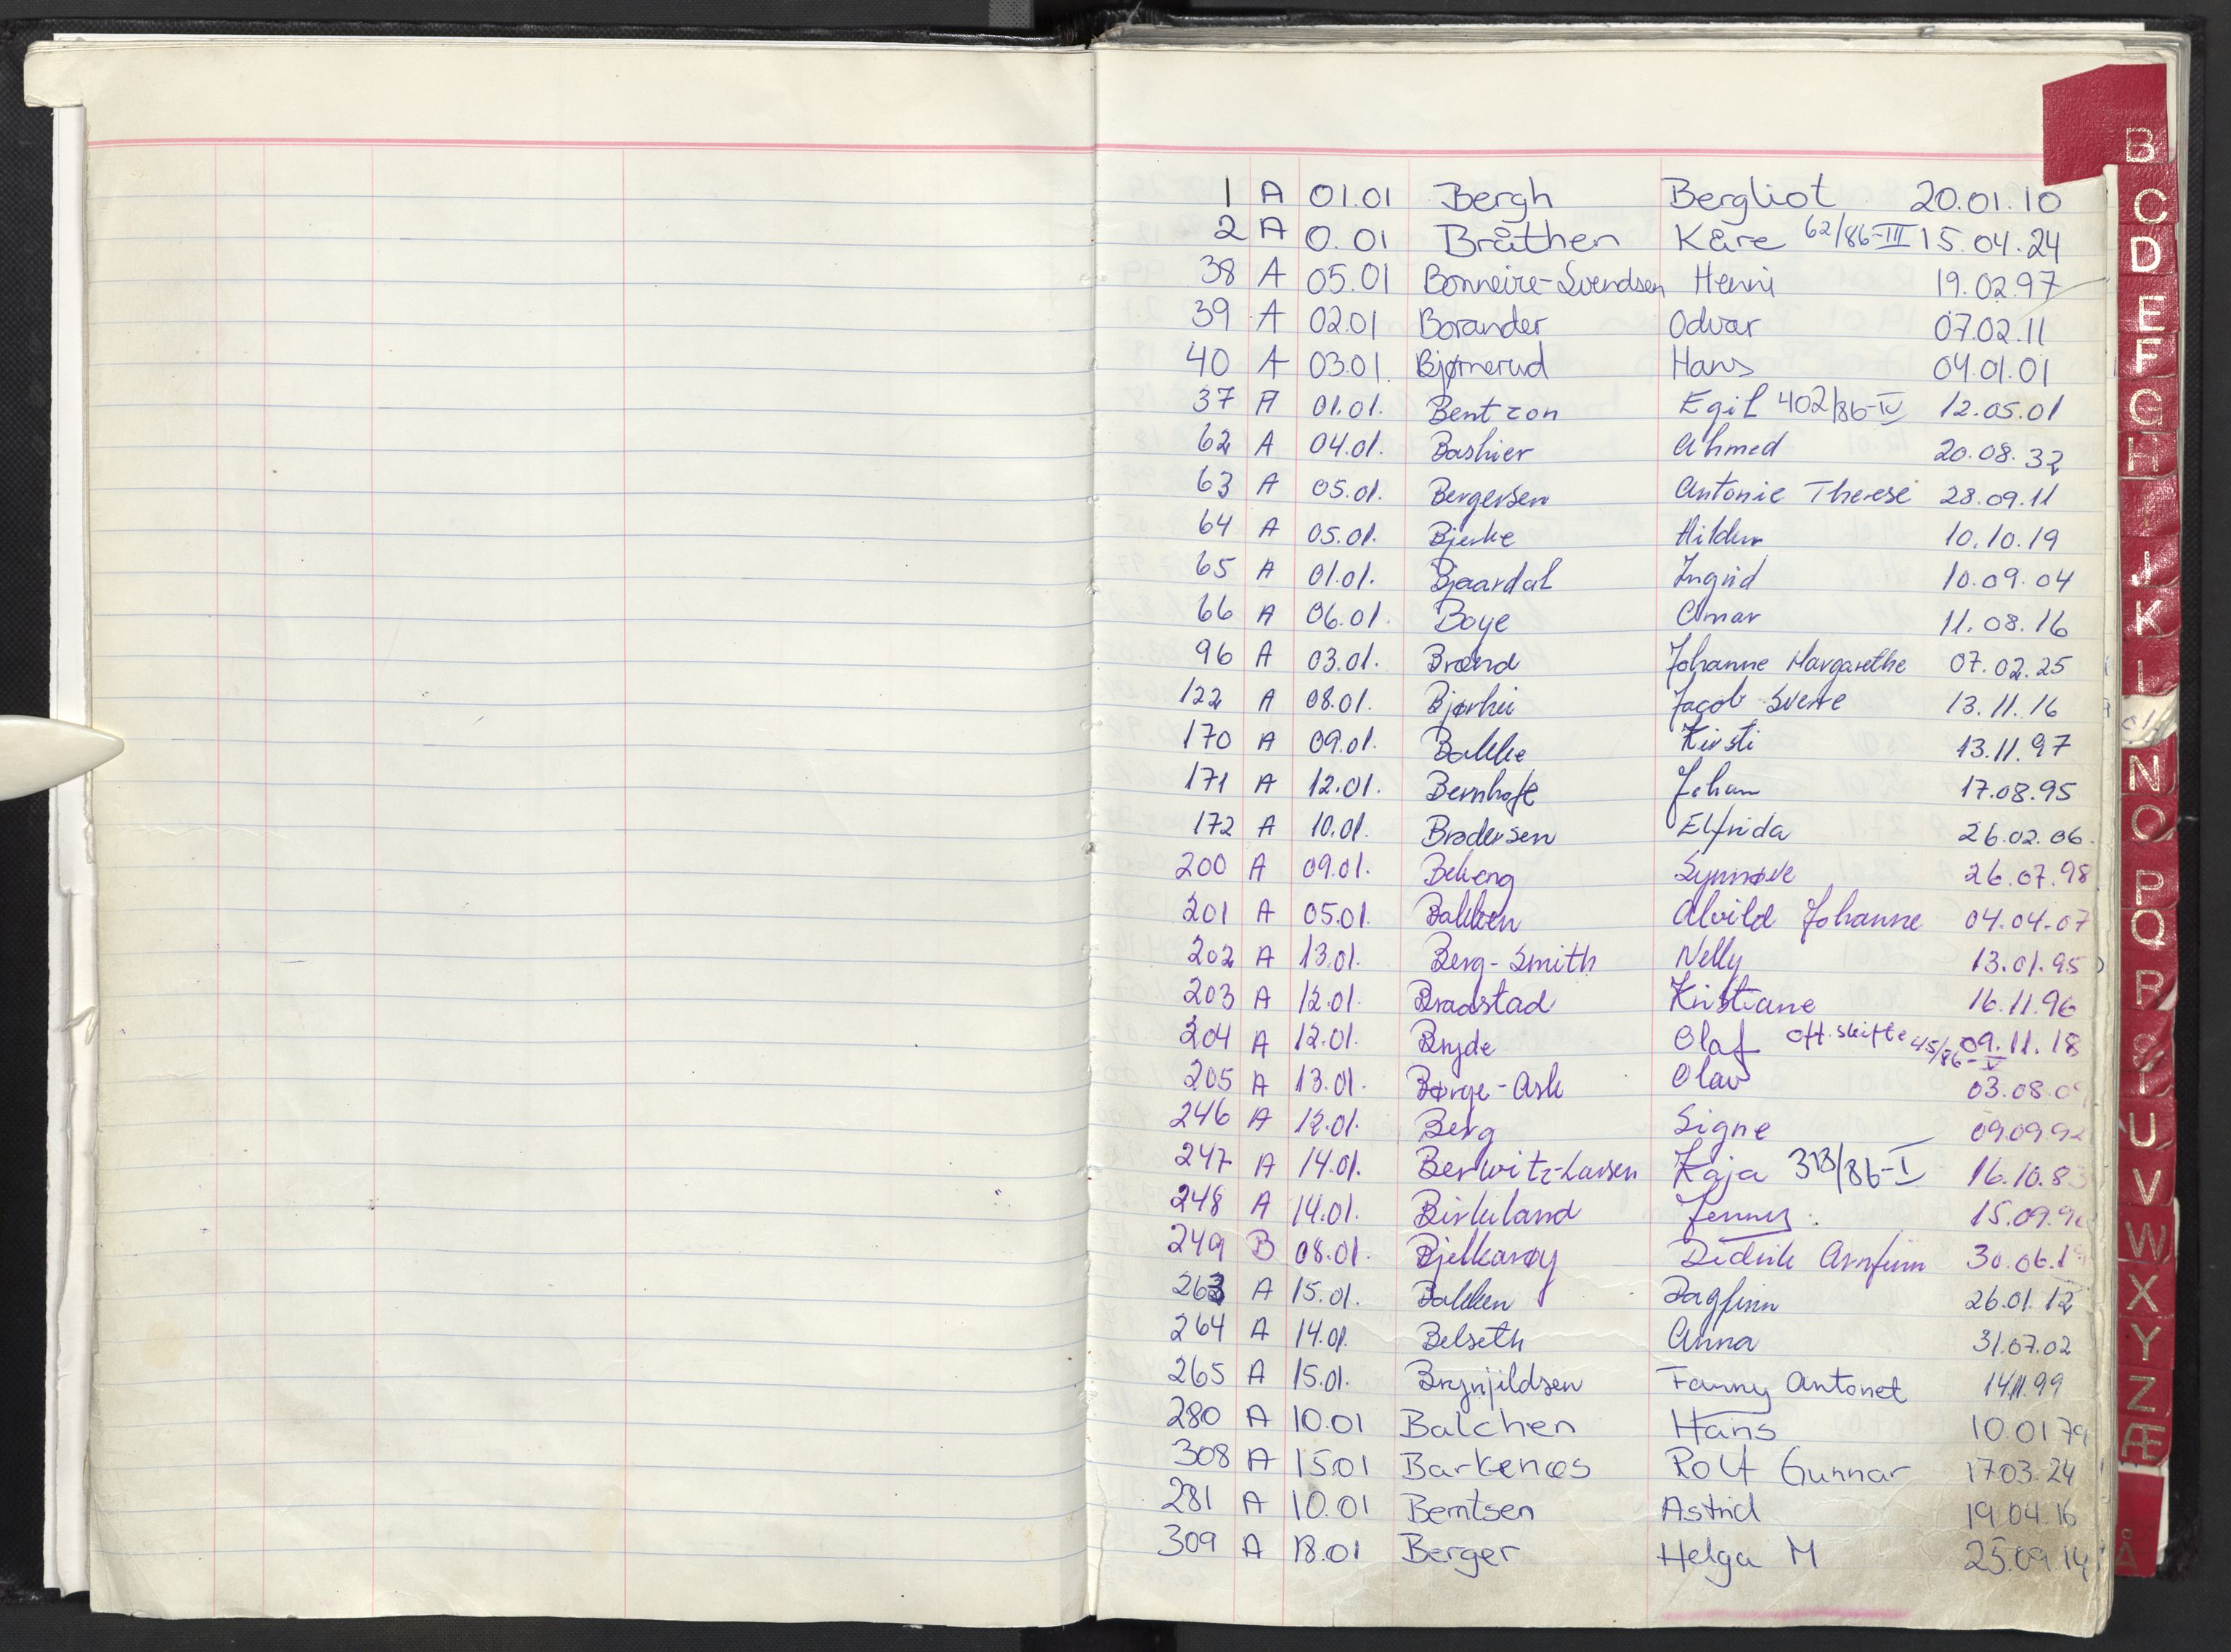 1 A 01.01 Bergh Bergliot 20.01.10
2 A 0.01 Bråthen Kåre 62/86-III 15.04.24
38 A 05.01 Bonneire-Svendsen Henni 19.02.97
39 A 02.01 Borander Odvar 07.02.11
40 A 03.01. Bjørnerud Hans 04.01.01
37 A 01.01. Bentzon Egil 402/86-IV 12.05.01
62 A 04.01. Bashier Ahmed 20.08.32
63 A 05.01. Bergersen Antonie Therese 28.09.11
64 A 05.01. Bjerke Hildur 10.10.19
65 A 01.01. Bjaardal Ingrid 10.09.04
66 A 06.01. Boye Omar 11.08.16
96 A 03.01. Brænd Johanne Margarethe 07.02.25
122 A 08.01. Jacob Sverre 13.11.16
170 A 09.01. Bakke Kirsti 13.11.97
171 A 12.01. Bernhoft Johan 17.08.95
172 A 10.01. Brodersen Elfrida 26.02.06.
200 A 09.01. Bekeng Synnøve 26.07.98
201 A 05.01. Bakken Alvild Johanne 04.04-07
202 A 13.01. Berg-Smith Nelly 13.01.95
203 A 12.01. Bradstad Kristiane 16.11.96
204 A 12.01. Bryde Olaf off. skifte 45/86-V 09.11.18
205 A 13.01. Børge-Ask Olav 03.08.0
246 A 12.01. Berg Signe 09.09.92
247 A 14.01. Berwitz-Larsen Kaja 313/86-I 16.10.83
248 A 14.01. Birkeland Jenny. 15.09.9
249 B 08.01. Bjelkarøy Didrik Arnfinn 30.06.1
263 A 15.01. Bakken Dagfinn 26.01.12
264 A 14.01. Belseth Anna 31.07.02
265 A 15.01. Brynjildsen Fanny Antonet 14.11.99
280 A 10.01 Balchen Hans 10.01 79
308 A 15.01 Barkenæs Rolf Gunnar 17.03.24
281 A 10.01 Berntsen Astrid 19.04.16
309 A 18.01 Berger Helga M 25.09.14
B
C
D
E
F
G
H
I
J
K
L
N
O
P
Q
R
S
T
U
V
W
X
Y
Z
Æ
Å